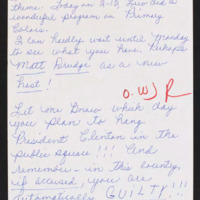 theme. Today on 2-13, Live did a
wonderful program on Primary
Colors.
I can hardly wait until Monday
to see what you have. Perhaps
Matt Drudge as a new
host!
O.W J R
Let me know which day
you plan to hang
President Clinton in the
public square!!! And
remember - in this country,
if accused, you are
automatically GUILTY!!!